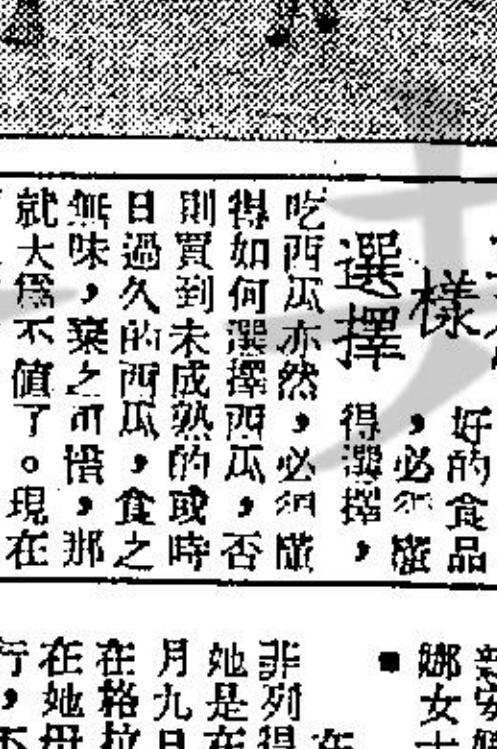 樣
選擇
好的食品
，必須懂
得選擇，
吃西瓜亦然，必須懂
得如何選擇西瓜，否
則買到未成熟的或時
日過久的西瓜，食之
無味，棄之可惜，那
就大為不值了。現在
娜女
非列得
她是在
月九日
在格拉
在她母
行，不